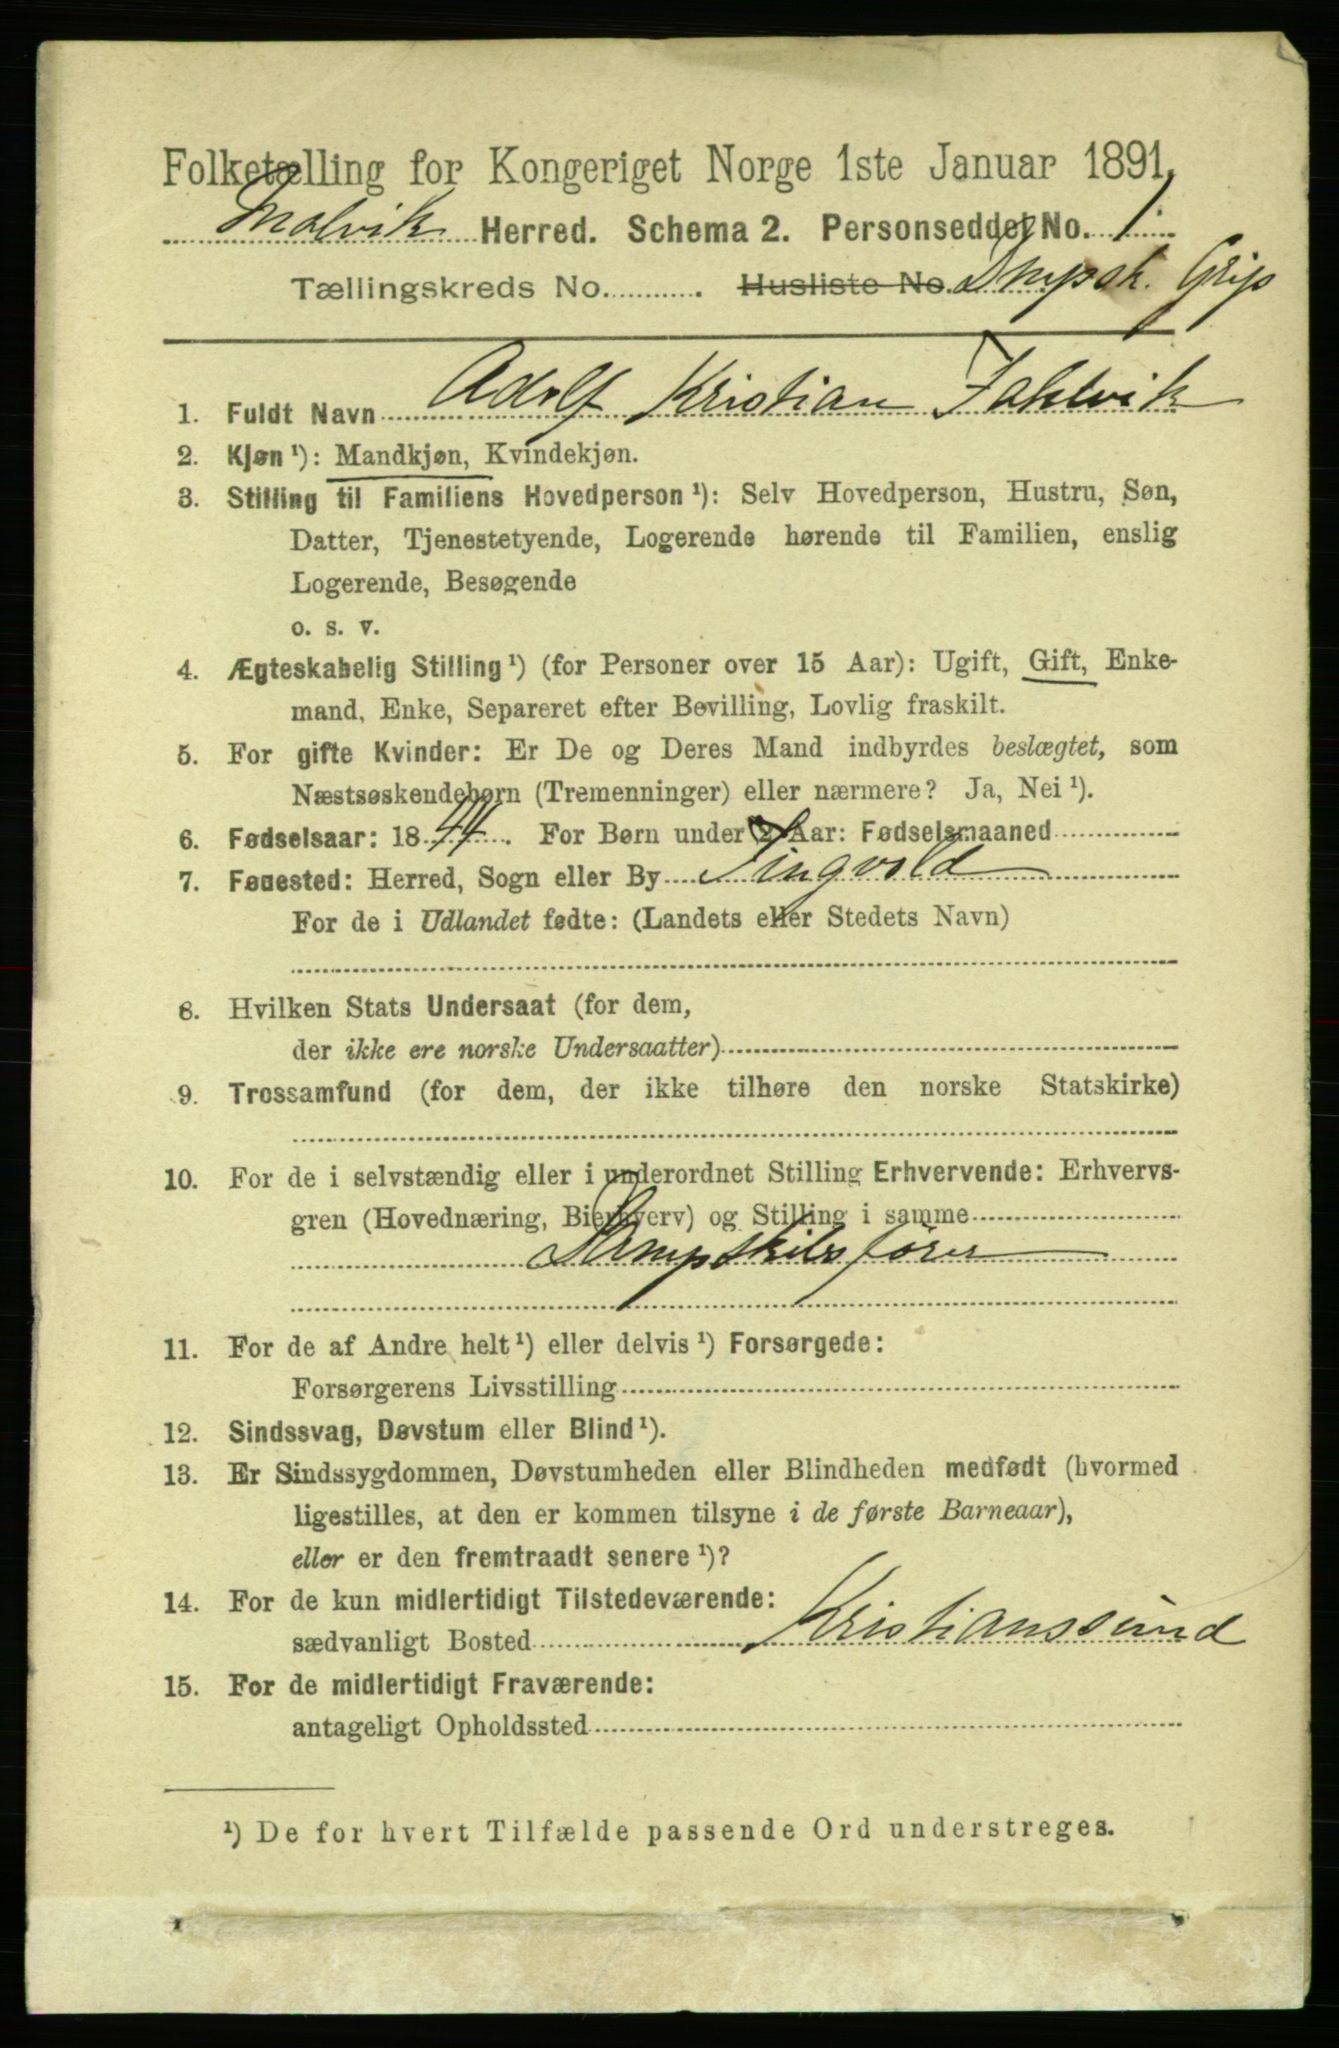 Folketælling for Kongeriget Norge 1ste Januar 1891.
Malvik Herred. Schema 2. Personseddel No. 1.
Tællingskreds No. Husliste No. Dmpsk. Grip
1. Fuldt Navn Adolf Kristian Fahlvik
2. Kjøn ¹): Mandkjøn, Kvindekjøn.
3. Stilling til Familiens Hovedperson ¹): Selv Hovedperson, Hustru, Søn,
Datter, Tjenestetyende, Logerende hørende til Familien, enslig
Logerende, Besøgende
o. s. v.
4. Ægteskabelig Stilling ¹) (for Personer over 15 Aar): Ugift, Gift, Enke-
mand, Enke, Separeret efter Bevilling, Lovlig fraskilt.
5. For gifte Kvinder: Er De og Deres Mand indbyrdes beslægtet, som
Næstsøskendebørn (Tremenninger) eller nærmere? Ja, Nei ¹).
6. Fødselsaar: 1844. For Børn under 2 Aar: Fødselsmaaned
7. Fødested: Herred, Sogn eller By Tingvold
For de i Udlandet fødte: (Landets eller Stedets Navn)
8. Hvilken Stats Undersaat (for dem,
der ikke ere norske Undersaatter)
9. Trossamfund (for dem, der ikke tilhøre den norske Statskirke)
10. For de i selvstændig eller i underordnet Stilling Erhvervende: Erhvervs-
gren (Hovednæring, Bierhverv) og Stilling i samme
Dampskibsfører
11. For de af Andre helt ¹) eller delvis ¹) Forsørgede:
Forsørgerens Livsstilling
12. Sindssvag, Døvstum eller Blind ¹).
13. Er Sindssygdommen, Døvstumheden eller Blindheden medfødt (hvormed
ligestilles, at den er kommen tilsyne i de første Barneaar),
eller er den fremtraadt senere ¹)?
14. For de kun midlertidigt Tilstedeværende:
sædvanligt Bosted Kristianssund
15. For de midlertidigt Fraværende:
antageligt Opholdssted
¹) De for hvert Tilfælde passende Ord understreges.